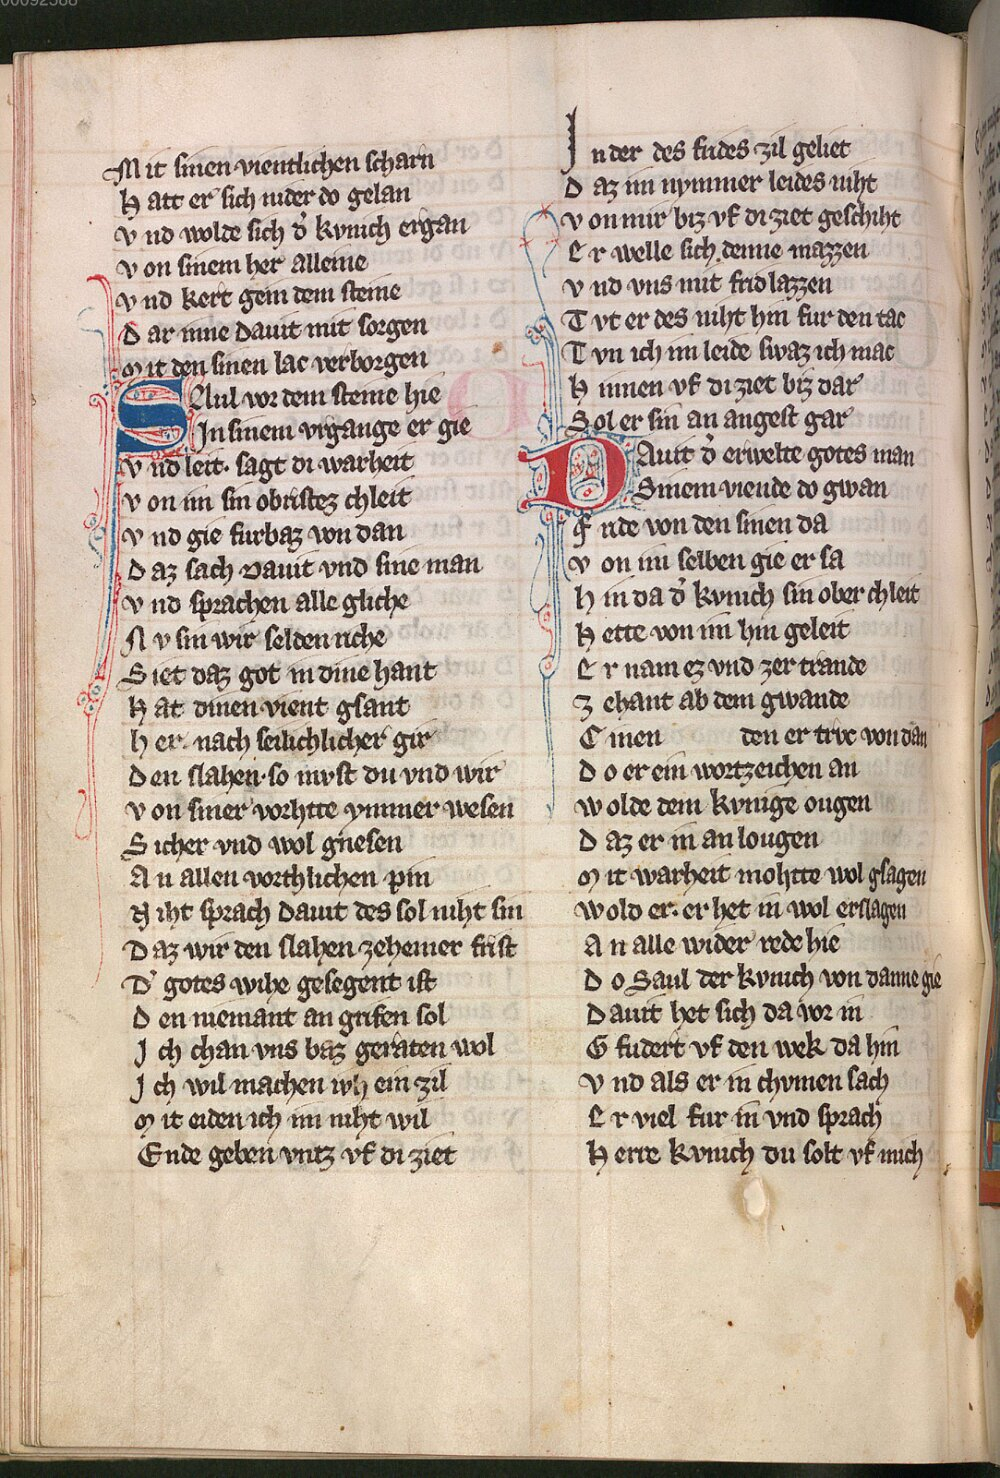 Mit sinen vientlichen scharn
Hatt er sich nider do gelan
vnd wolde sich d' kvnich ergan
von sinem her alleine
vnd kert gein dem steine
Dar inne dauit mit sorgen
Mit den sinen lac verborgen
SAul vor dem steine hie
In sinem vrgange er gie
vnd leit. sagt di warheit
von im sin obristez chleit
vnd gie furbaz von dan
Daz sach Dauit vnd sine man
vnd sprachen alle gliche
Nv sin wir selden riche
Siet daz got in dine hant
Hat dinen vient gsant
her. nach seilichlicher gir
Den slahen. so mvst du vnd wir
von siner vorhtte ymmer wesen
Sicher vnd wol gnesen
An allen vorthlichen pin
Niht sprach Dauit des sol niht sin
Daz wir den slahen zeheiner frist
D' gotes wihe gesegent ist
Den niemant an grifen sol
Ich chan vns baz geraten wol
Ich wil machen ivh ein zil
Mit eiden ich im niht wil
Ende geben vntz vf di ziet
In der des frides zil geliet
Daz im nymmer leides niht
von mir biz vf di ziet geschiht
Er welle sich denne mazzen
vnd vns mit frid lazzen
Tvt er des niht hin fur den tac
Tvn ich im leide swaz ich mac
Hinnen vf di ziet biz dar
Sol er sin an angest gar
DAuit d' erwelte gotes man
Sinem viende do gwan
Fride von den sinen da
von im selben gie er sa
Hin da d' kvnich sin ober chleit
Hette von im hin geleit
Er nam ez vnd zer trande
Zehant ab dem gwande
Einen den er trvc von dan
Do er ein wortzeichen an
wolde dem kvnige ougen
Daz er in an lougen
Mit warheit mohtte wol gsagen
wold er. er het in wol erslagen
An alle wider rede hie
Do Saul der kvnich von danne gie
Dauit het sich da vor in
Gfudert vf den wek da hin
vnd als er in chvmen sach
Er viel fur in vnd sprach
Herre kvnich du solt vf mich